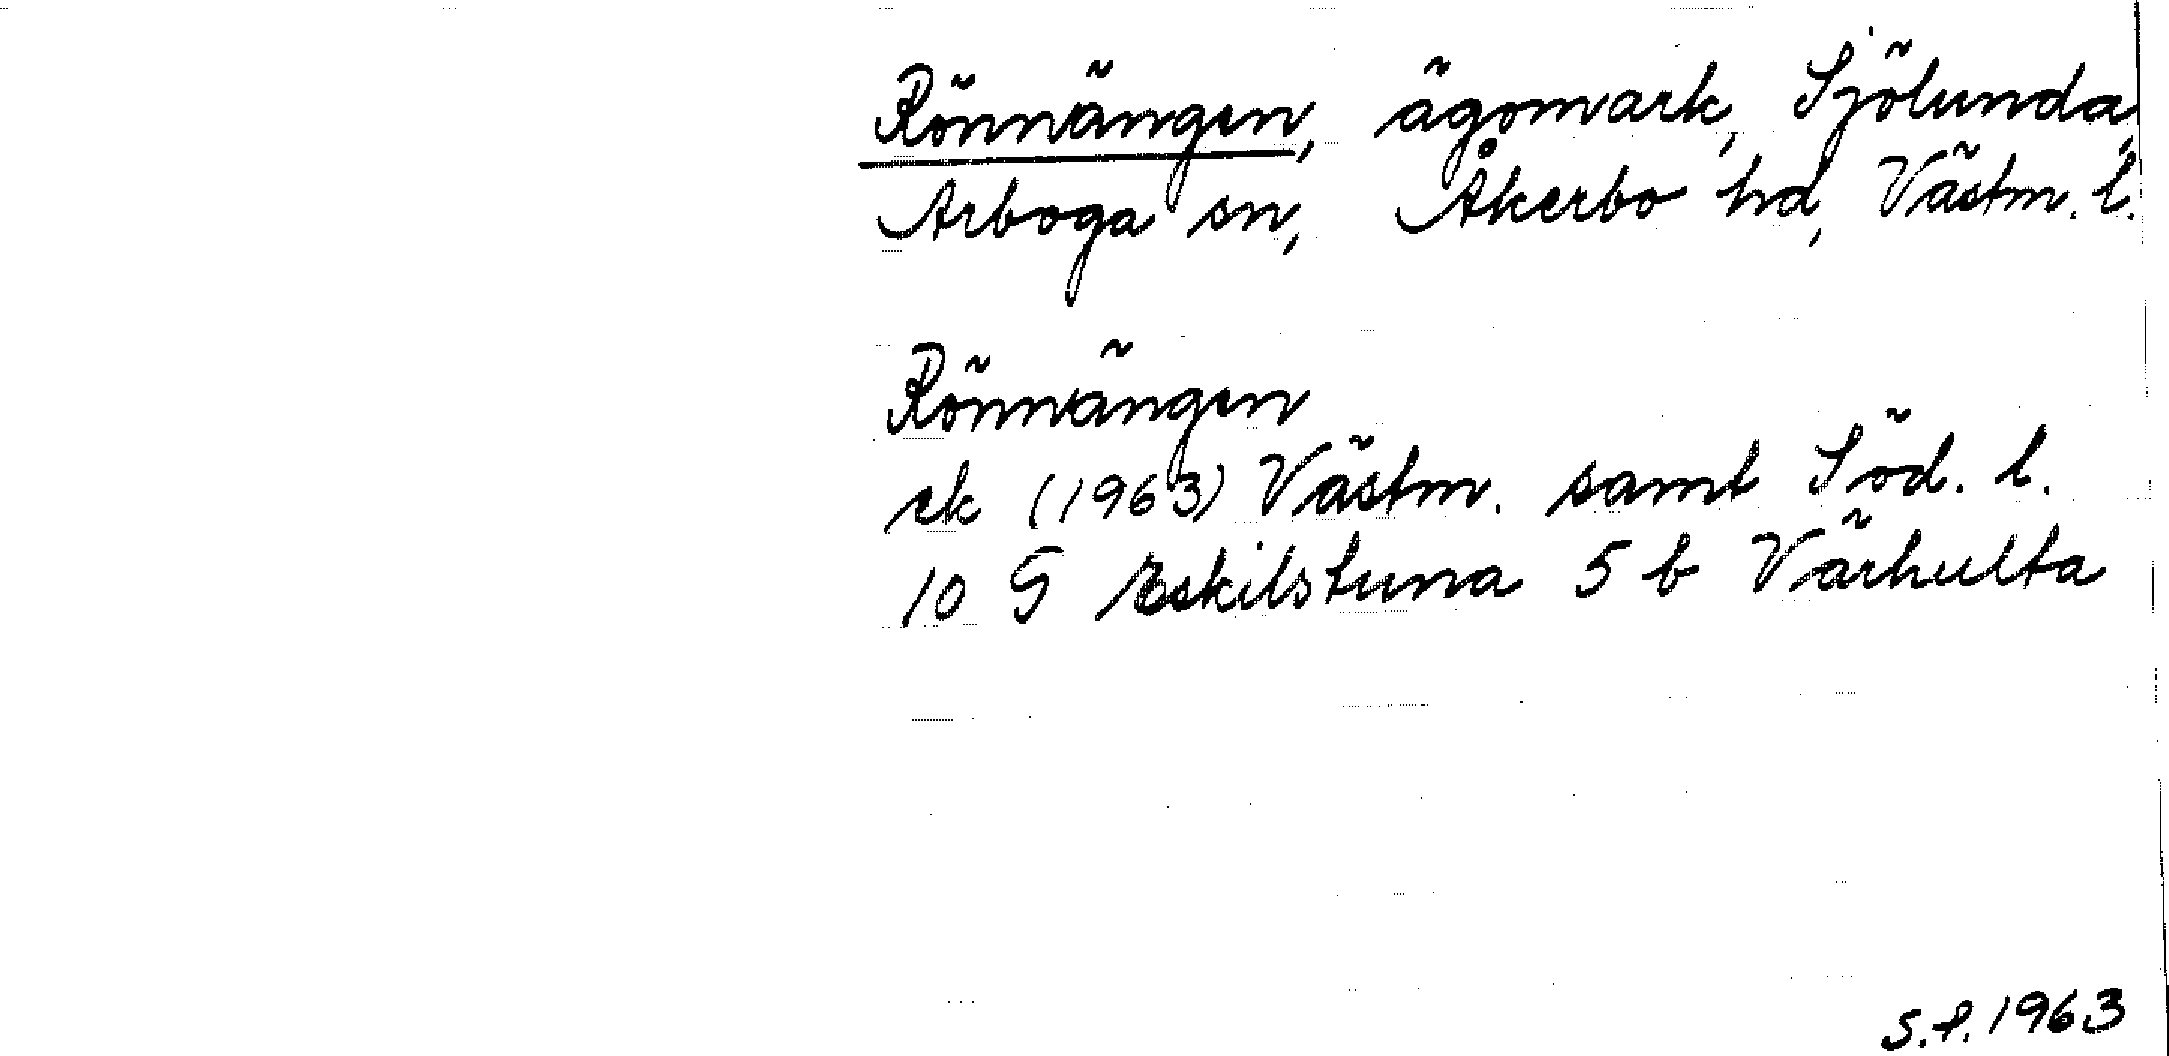 Rönnängen, ägomark, Sjölunda,
Arboga sn, Åkerbo hd, Västm. l.
Rönnängen
ek (1963) Västm. samt Söd. l.
10 G Eskilstuna 5 b Värhulta
S.P. 1963